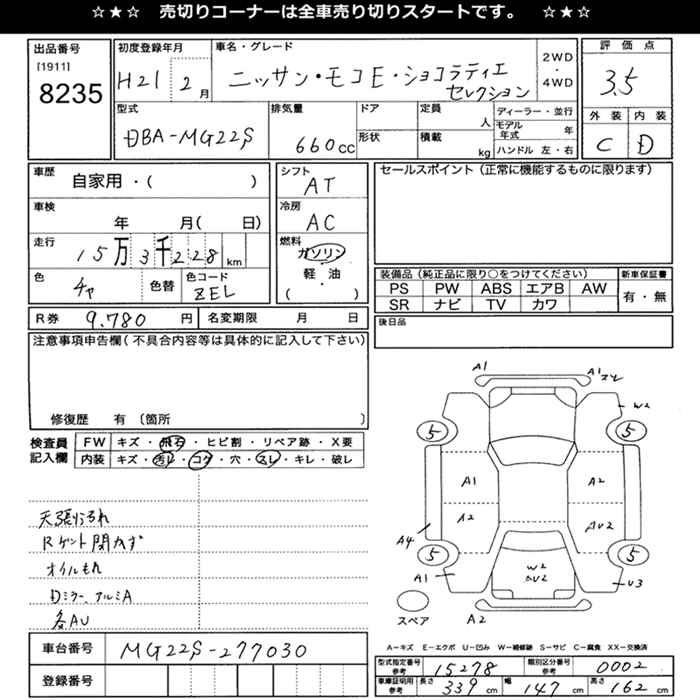 ☆★☆ 売切りコーナーは全車売り切りスタートです。 ☆★☆
出品番号
[1911]
8235
初度登録年月
H21 2月
車名・グレード
ニッサン・モコE・ショコラティエ
セレクション
2WD
・
4WD
評価点
3.5
外装 内装
C D
型式
DBA-MG22S
排気量
660cc
ドア
形状
定員
人
積載
kg
ディーラー・並行
モデル年式 年
ハンドル 左・右
車歴
自家用・( )
車検
年 月( 日)
走行
15万3千228km
色
チャ
色替
色コード
ZEL
シフト
AT
冷房
AC
燃料
ガソリン
・
軽・油
( )
セールスポイント (正常に機能するものに限ります)
装備品 (純正品に限り○をつけてください)
PS PW ABS エアB AW
SR ナビ TV カワ
新車保証書
有・無
R券 9.780 円
名変期限 月 日
後日品
注意事項申告欄 (不具合内容等は具体的に記入して下さい)
修復歴 有 〔箇所 〕
検査員
記入欄
FW キズ・飛石・ヒビ割・リペア跡・X要
内装 キズ・汚レ・コゲ・穴・スレ・キレ・破レ
天張り汚れ
Rゲート開かず
オイルもれ
Dミラー、アルミA
各AU
A1
A1
W2
5
5
A1
A2
A2
AU2
A4
5
5
A1
W2
AU2
U3
スペア
A2
A-キズ E-エクボ U-凹み W-補修跡 S-サビ C-腐食 XX-交換済
車台番号 MG22S-277030
登録番号
型式指定番号
参考
15278
類別区分番号
参考
0002
車庫証明用
参考
長さ 339 cm 幅 147 cm 高さ 162 cm